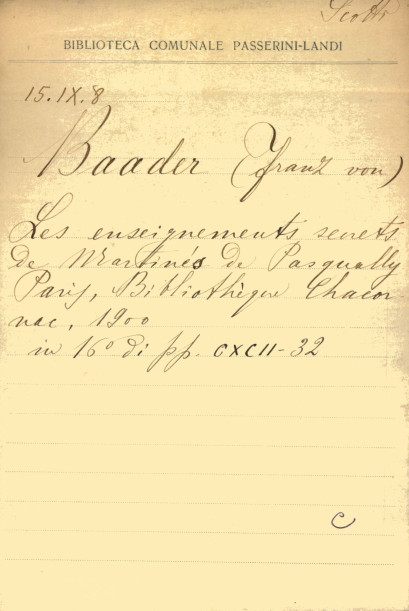 Scotti
BIBLIOTECA COMUNALE PASSERINI-LANDI
15.IX.8
Baader (Franz von)
Les enseignements secrets
de Martinés de Pasqually
Paris, Bibliothèque Chacor-
nac, 1900
in 16º di pp. CXCII-32
C